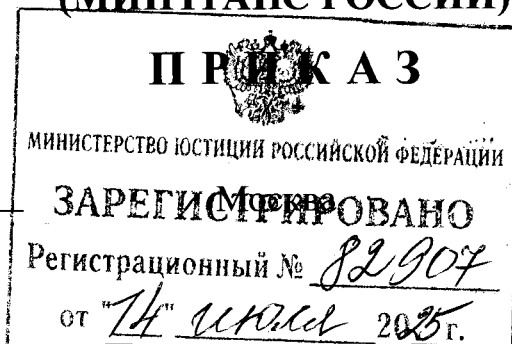 (МИНТРАНС РОССИИ)
ПРИКАЗ
МИНИСТЕРСТВО ЮСТИЦИИ РОССИЙСКОЙ ФЕДЕРАЦИИ
Москва
ЗАРЕГИСТРИРОВАНО
Регистрационный № 82907
от "14" июля 2025 г.